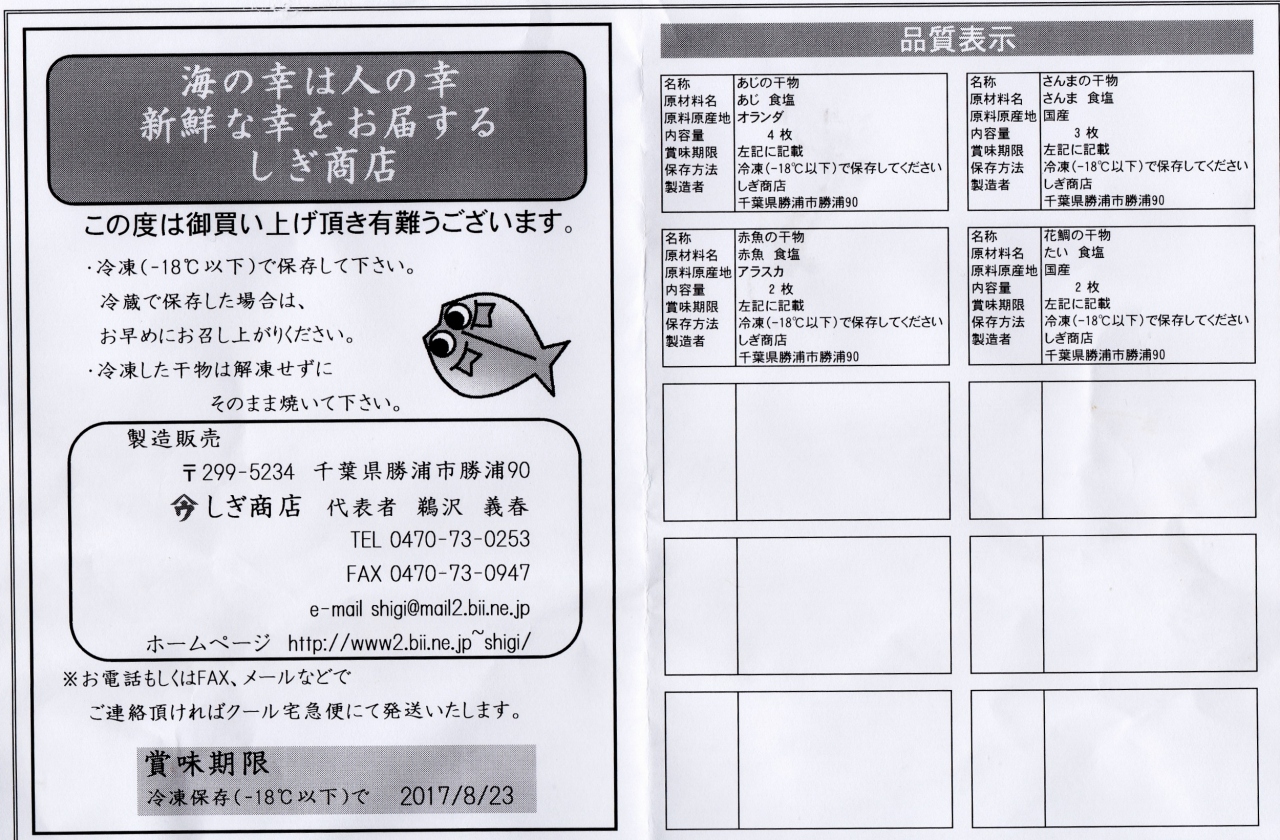 海の幸は人の幸
新鮮な幸をお届する
しぎ商店
この度は御買い上げ頂き有難うございます。
・冷凍(-18℃以下)で保存して下さい。
冷蔵で保存した場合は、
お早めにお召し上がりください。
・冷凍した干物は解凍せずに
そのまま焼いて下さい。
製造販売
〒299-5234 千葉県勝浦市勝浦90
しぎ商店 代表者 鵜沢 義春
TEL 0470-73-0253
FAX 0470-73-0947
e-mail shigi@mail2.bii.ne.jp
ホームページ http://www2.bii.ne.jp~shigi/
※お電話もしくはFAX、メールなどで
ご連絡頂ければクール宅急便にて発送いたします。
賞味期限
冷凍保存(-18℃以下)で 2017/8/23
品質表示
名称 あじの干物
原材料名 あじ 食塩
原料原産地 オランダ
内容量 4 枚
賞味期限 左記に記載
保存方法 冷凍(-18℃以下)で保存してください
製造者 しぎ商店
千葉県勝浦市勝浦90
名称 さんまの干物
原材料名 さんま 食塩
原料原産地 国産
内容量 3 枚
賞味期限 左記に記載
保存方法 冷凍(-18℃以下)で保存してください
製造者 しぎ商店
千葉県勝浦市勝浦90
名称 赤魚の干物
原材料名 赤魚 食塩
原料原産地 アラスカ
内容量 2 枚
賞味期限 左記に記載
保存方法 冷凍(-18℃以下)で保存してください
製造者 しぎ商店
千葉県勝浦市勝浦90
名称 花鯛の干物
原材料名 たい 食塩
原料原産地 国産
内容量 2 枚
賞味期限 左記に記載
保存方法 冷凍(-18℃以下)で保存してください
製造者 しぎ商店
千葉県勝浦市勝浦90